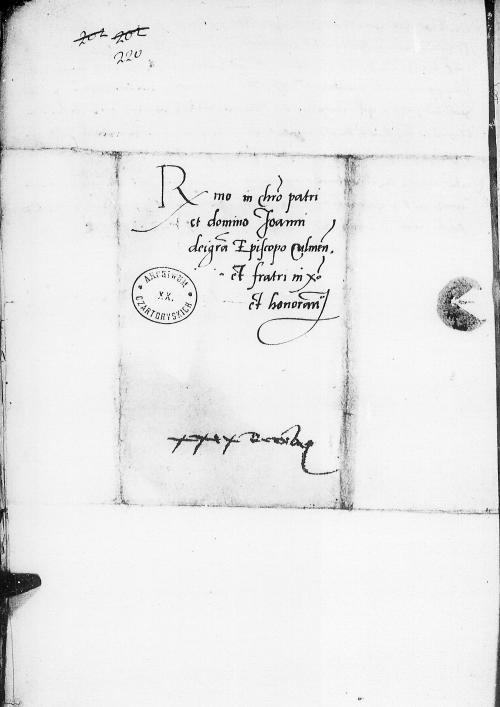 201 201
220
Rmo in chro patri
et domino Joanni
dei gra Episcopo Culmen.
et fratri in xo
et honoran
ARCHIWUM
XX.
CZARTORYSKICH